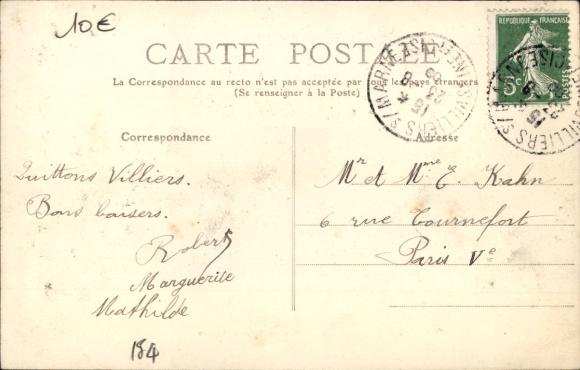 10€
CARTE POSTALE
La Correspondance au recto n'est pas acceptée par tous les pays étrangers
(Se renseigner à la Poste)
RÉPUBLIQUE FRANÇAISE
5c
POSTES
Correspondance
Adresse
Quittons Villiers.
Bons baisers.
Robert
Marguerite
Mathilde
Mr et Mme E. Kahn
6 rue Tournefort
Paris Ve
154